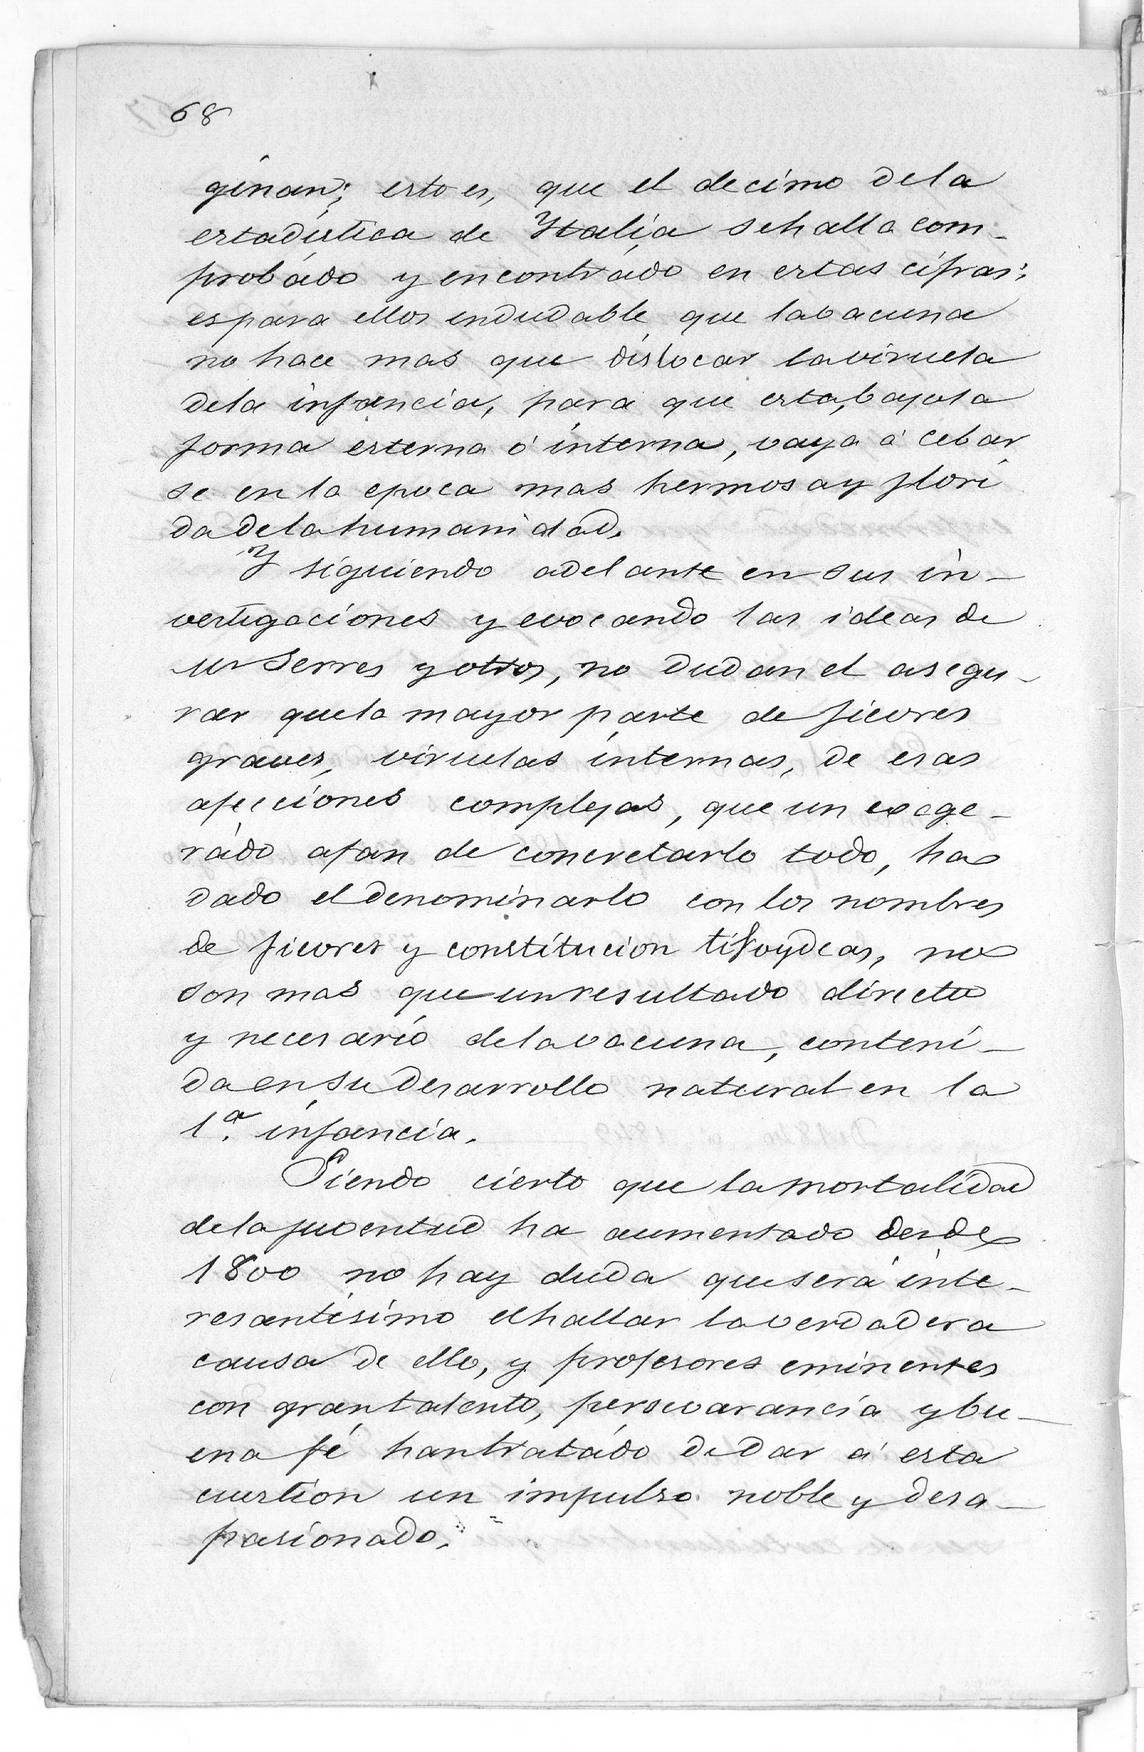 68
ginan; esto es, que el decimo de la
estadistica de Italia se halla com-
probádo y encontrádo en estas cifras;
es para ellos indudable que la vacuna
no hace mas que dislocar la viruela
de la infancia, para que esta, bajo la
forma esterna ó interna, vaya á cebar
se en la epoca mas hermosa y flori
da de la humanidad.
Y siguiendo adelante en sus in-
vestigaciones y evocando las ideas de
Mr Serres y otros, no dudan el asegu-
rar que la mayor parte de ficores
graves, viruelas internas, de esas
afecciones complejas, que un exage-
rádo afan de concretarlo todo, ha
dado el denominarlo con los nombres
de ficores y constitucion tifoydeas, no
son mas que un resultado directo
y necesario de la vacuna, conteni-
da en su desarrollo natural en la
1.ª infancia.
Siendo cierto que la mortalidad
de la juventud ha aumentado desde
1800 no hay duda que será inte-
resantisimo el hallar la verdadera
causa de ello, y profesores eminentes
con gran talento, persevarancia y bu-
ena fé han tratádo de dar á esta
cuestion un impulso noble y desa-
pasionado.